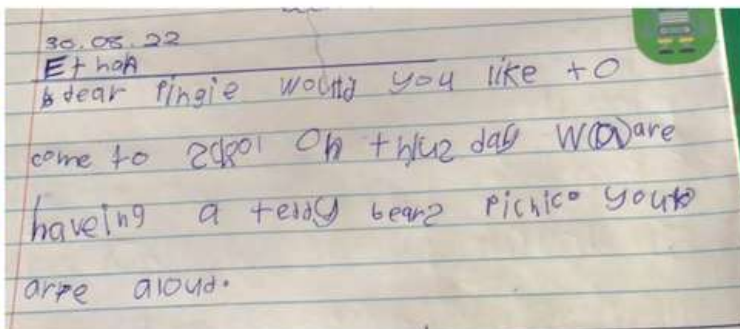 30.08.22
Ethan
dear Pingie would you like to
come to school on thursday we are
haveing a teddy bears picnic. you
are aloud.